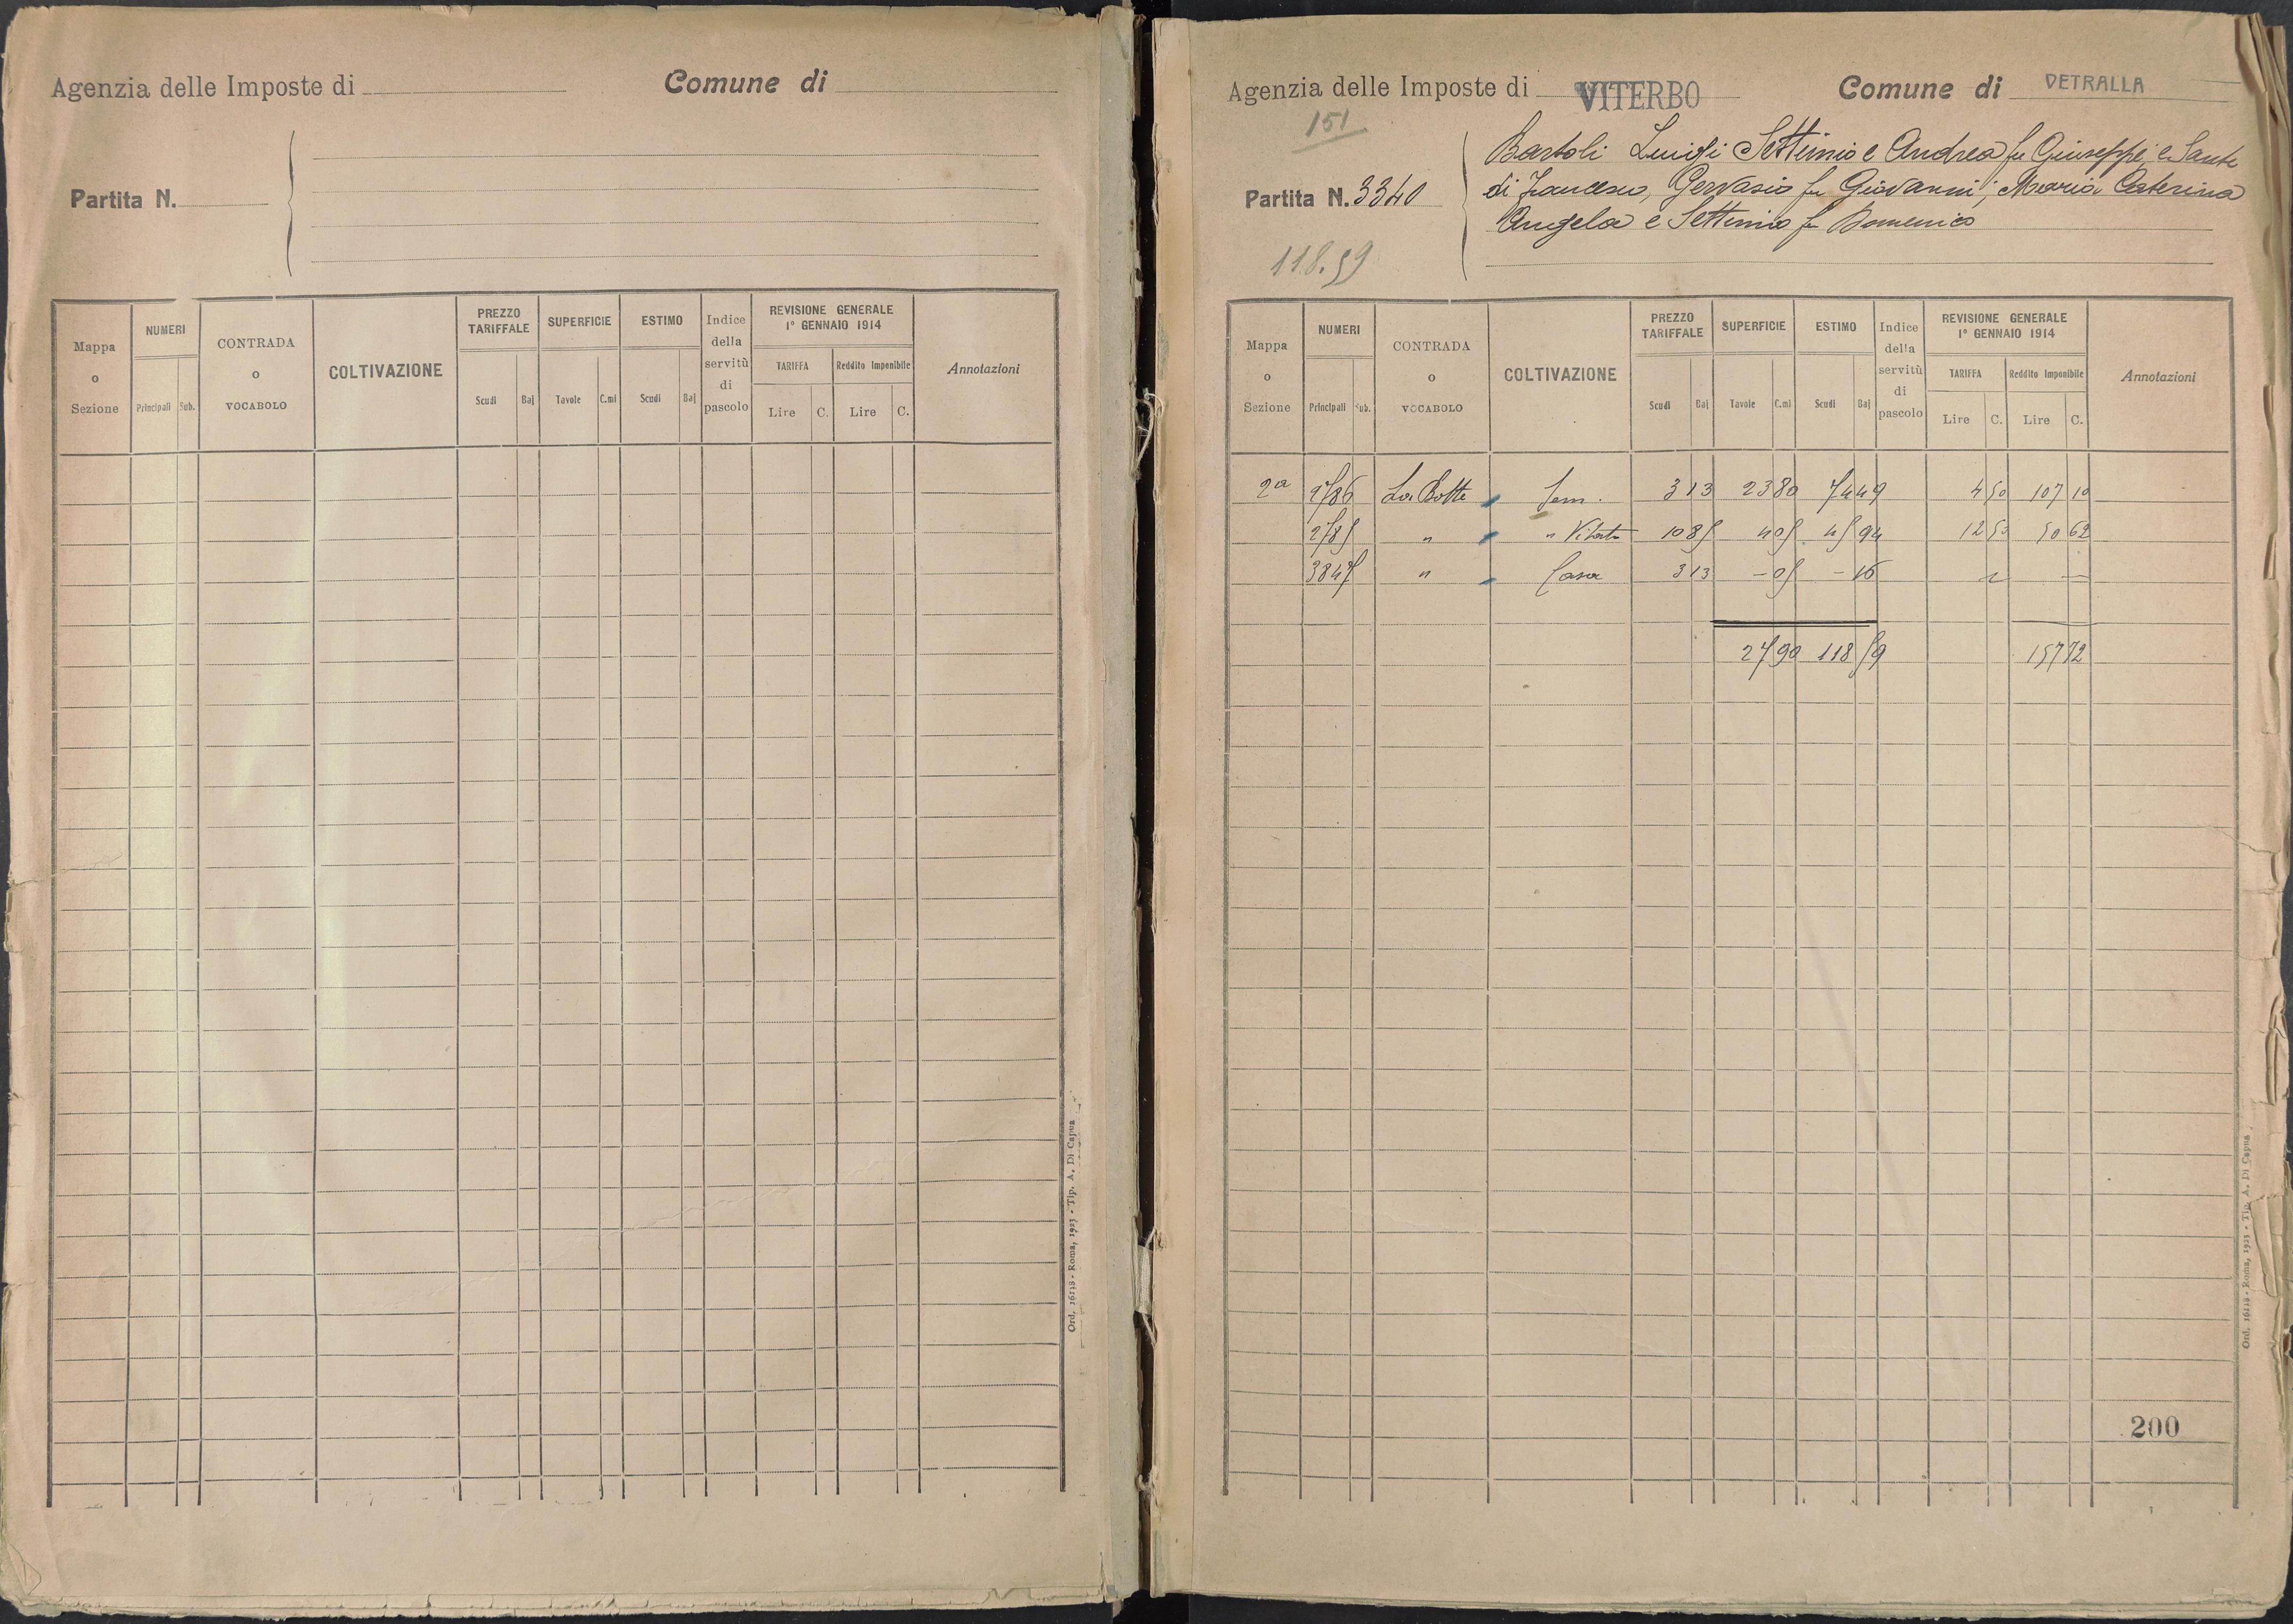 Agenzia delle Imposte di Comune di
Partita N.
Mappa o Sezione NUMERI Principali Sub. CONTRADA o VOCABOLO COLTIVAZIONE PREZZO TARIFFALE Scudi Baj SUPERFICIE Tavole C.mi ESTIMO Scudi Baj Indice della servitù di pascolo REVISIONE GENERALE 1° GENNAIO 1914 TARIFFA Lire C. Reddito Imponibile Lire C. Annotazioni
Ord. 16118 - Roma, 1923 - Tip. A. Di Capua
Agenzia delle Imposte di VITERBO Comune di VETRALLA
151
Bartoli Luigi Settimio e Andrea fu Giuseppe, e Sante
Partita N. 3340 di Francesco, Gervasio fu Giovanni; Maria Caterina
Angela e Settimio fu Domenico
118.59
Mappa o Sezione NUMERI Principali Sub. CONTRADA o VOCABOLO COLTIVAZIONE PREZZO TARIFFALE Scudi Baj SUPERFICIE Tavole C.mi ESTIMO Scudi Baj Indice della servitù di pascolo REVISIONE GENERALE 1° GENNAIO 1914 TARIFFA Lire C. Reddito Imponibile Lire C. Annotazioni
2a 2786 La Botte Sem. 3 13 23 80 74 49 4 50 107 10
2785 " " Vitato 10 85 4 05 45 94 12 50 50 62
3847 " Casa 3 13 - 05 - 16 " —
27 90 118 59 157 72
200
Ord. 16118 - Roma, 1923 - Tip. A. Di Capua